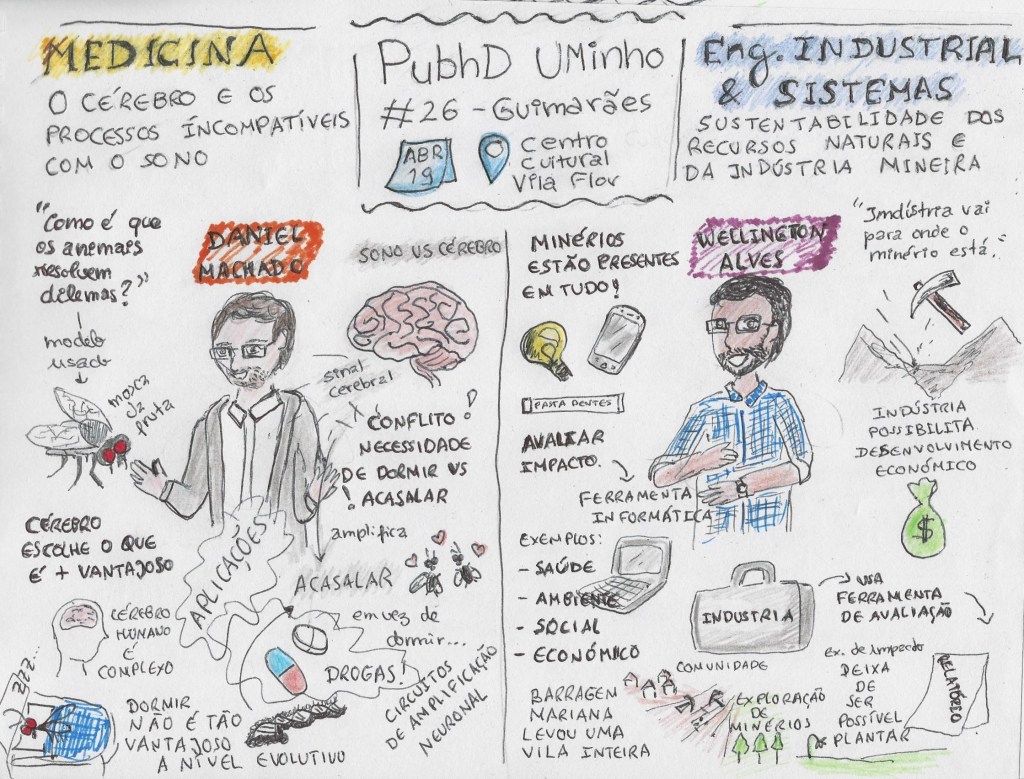 MEDICINA
O CÉREBRO E OS
PROCESSOS ÍNCOMPATÍVEIS
COM O SONO
PubhD UMinho
#26 - Guimarães
ABR
19
Centro
Cultural
Vila Flor
Eng. INDUSTRIAL
& SISTEMAS
SUSTENTABILIDADE DOS
RECURSOS NATURAIS E
DA INDÚSTRIA MINEIRA
"Como é que
os animais
resolvem
dilemas?"
modelo
usado
mosca
da
fruta
DANIEL
MACHADO
SONO VS CÉREBRO
sinal
cerebral
CONFLITO!
NECESSIDADE
DE DORMIR VS
! ACASALAR
amplifica
ACASALAR
em vez de
dormir...
CÉREBRO
ESCOLHE O QUE
É + VANTAJOSO
APLICAÇÕES
DROGAS!
CIRCUITOS
DE AMPLIFICAÇÃO
NEURONAL
CÉREBRO
HUMANO
É
COMPLEXO
ZZZ...
DORMIR
NÃO É TÃO
VANTAJOSO
A NÍVEL EVOLUTIVO
MINÉRIOS
ESTÃO PRESENTES
EM TUDO!
WELLINGTON
ALVES
"Indústria vai
para onde o
minério está."
PASTA DENTES
AVALIAR
IMPACTO.
FERRAMENTA
INFORMÁTICA
EXEMPLOS:
- SAÚDE
- AMBIENTE
- SOCIAL
- ECONÓMICO
INDÚSTRIA
POSSIBILITA
DESENVOLVIMENTO
ECONÓMICO
$
INDUSTRIA
USA
FERRAMENTA
DE AVALIAÇÃO
COMUNIDADE
BARRAGEM
MARIANA
LEVOU UMA
VILA INTEIRA
EXPLORAÇÃO
DE
MINÉRIOS
Ex. de Impacto
DEIXA
DE
SER
POSSÍVEL
PLANTAR
RELATÓRIO